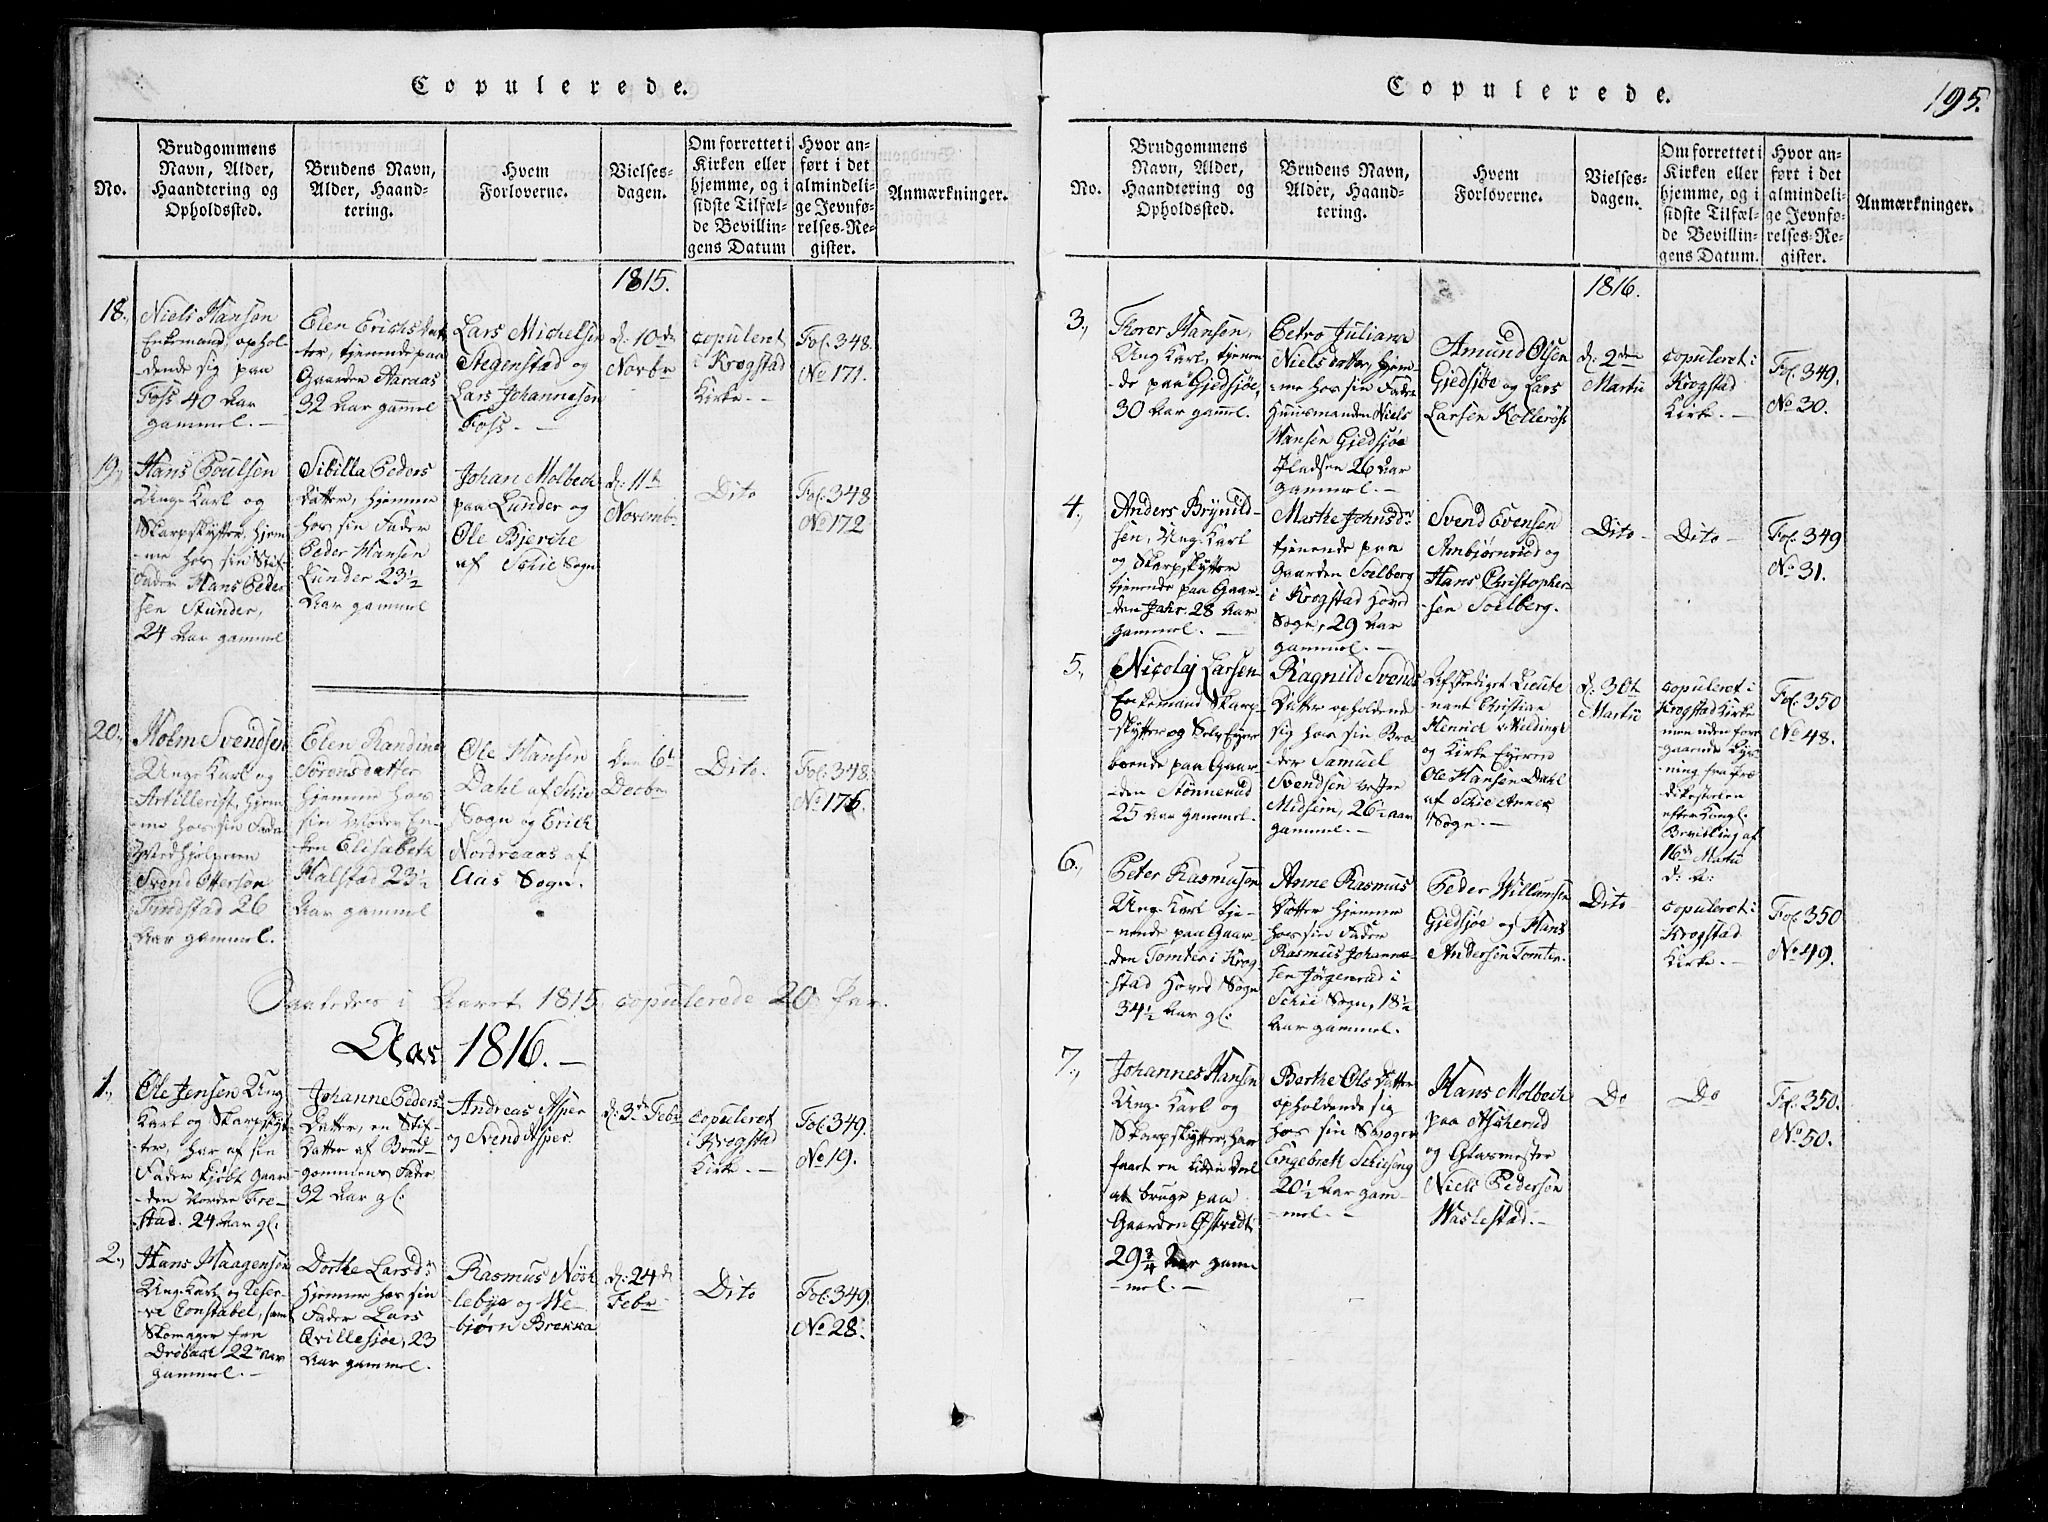 Copulerede.
No.
Brudgommens
Navn, Alder,
Haandtering og
Opholdssted.
Brudens Navn,
Alder, Haand-
tering.
Hvem
Forloverne.
Vielses-
dagen.
Om forrettet i
Kirken eller
hjemme, og i
sidste Tilfæl-
de Bevillin-
gens Datum
Hvor an-
ført i det
almindeli-
ge Jevnfø-
relses-Re-
gister.
Anmærkninger.
1815.
18.,
Niels Hansen
Enkemand, ophol-
dende sig paa
Foss 40 Aar
gammel. -
Elen Erichsdat-
ter, tjenende paa
Gaarden Aaraas
32 Aar gammel
Lars Michelsen
Stegenstad og
Lars Johannesen
Foss. -
d: 10de
Novbr
copuleret
i Krogstad
Kirke. -
Fol. 348.
No 171.
19.,
Hans Poulsen
Unge Karl og
Skarpskytter, hjem-
me hos sin Stif-
fader Hans Peder
sen Stunder,
24 Aar gammel
Sibilla Peders
Datter, hjemme
hos sin Fader
Peder Hansen
Lunder 23½
Aar gammel
Johan Molbech
paa Lunder og
Ole Bjerche
af Schie Sogn
d: 11te
Novemb:
Dito
Fol. 348
No 172
20.,
Holm Svendsen
Unge Karl og
Artillerist, hjem-
me hos sin Fader
Svend Ottersen
Tandstad 26
Aar gammel.
Elen Randine
Sørensdatter
hjemme hos
sin Moder En-
ken Elisabeth
Halstad 23½
Aar gammel
Ole Hansen
Dahl af Schie
Sogn og Erich
Nordreaas af
Aas Sogn.
den 6te
Decbr
Dito.
Fol. 348.
No 176.
Saaledes i Aaret 1815 copulerede 20 Par.
Aar 1816. -
1.,
Ole Jensen Ung
Karl og Skarpskyt-
ter, har af sin
Fader kjøbt Gaar-
den Nordre Fre-
stad. 24 Aar gl:
Johanne Peders-
Datter, en Stif-
Datter af Brud-
gommens Fader
32 Aar gl:
Andreas Asper
og Svend Asper.
d: 3de Febr
copuleret
i Krogstad
Kirke. -
Fol. 349.
No 19.
2.,
Hans Haagensen
Unge Karl og Reser-
ve Constabel, samt
Skomager fra
Drøbak 22 Aar
gammel. -
Dorthe Larsd:
hjemme hos sin
Fader Lars
Qvillesjøe, 23
Aar gammel.
Rasmus Nøst-
lebye og We-
bjørn Brekka
d: 24de
Febr
Dito
Fol. 349.
No 28.
Copulerede.
195.
No.
Brudgommens
Navn, Alder,
Haandtering og
Opholdsted.
Brudens Navn,
Alder, Haand-
tering.
Hvem
Forloverne.
Vielses-
dagen.
Om forrettet i
Kirken eller
hjemme, og i
sidste Tilfæl-
de Bevillin-
gens Datum.
Hvor an-
ført i det
almindeli-
ge Jevnfø-
relses-Re-
gister.
Anmærkninger.
1816.
3.,
Thorer Hansen,
Ung Karl, tjenen-
de paa Gjedsjøe,
30 Aar gamml.
Petro Juliane
Nielsdatter, hjem-
me hos sin Fader
Huusmanden Niels
Hansen Gjedsjøe
Pladsen 26 Aar
gammel. -
Amund Olsen
Gjedsjøe og Lars
Larsen Kollerøs
d: 2den
Martii
copuleret i
Krogstad
Kirke. -
Fol. 349.
No 30.
4.,
Anders Brynild-
sen, Unge Karl
og Skarpskytter
tjenende paa Gaar-
den 28 Aar
gammel. -
Marthe Johnsd:
tjenende paa
Gaarden Soelberg
i Krogstad Hoved
Sogn, 29 Aar
gammel. -
Svend Evensen
Ambjørnrud og
Hans Christopher-
sen Soelberg.
Dito -
Dito -
Fol. 349
No 31.
5.,
Nicolaj Larsen
Enkemand Skarp-
skytter og Selv Eyer
boende paa Gaar-
den Stønnerud
25 Aar gammel.
Ragnild Svends
Datter opholdende
sig hos sin Bro-
der Samuel
Svendsen vestre
Midsem, 26½ aar
gammel. -
Afskediget Lieute
nant Christian
Henrich
og Kirke Eyeren
Ole Hansen Dahl
af Schie Annex
Sogn. -
d: 30te
Martii
copuleret i
Krogstad Kirke
men uden fore
gaaende Lys-
ning fra Præ
dikestolen
efter Kongl.
Bevilling af
16de Martii
d: A:
Fol. 350
No 48.
6.,
Peter Rasmusen
Unge Karl tje-
nende paa Gaar-
den Tomter i Krog-
stad Hoved Sogn
34½ Aar gl:
Anne Rasmus
Datter hjemme
hos sin Fader
Rasmus Johanne-
sen Jørgenrud i
Schie Sogn, 18½
Aar gammel.
Peder Willumsen
Gjedsjøe og Hans
Andersen Tomter.
Dito
copuleret i
Krogstad
Kirke. -
Fol. 350
No 49.
7.,
Johannes Hansen
Unge Karl og
Skarpskytter, har
faaet en liden Deel
at bruge paa
Gaarden Østvedt
29¾ Aar gam
mel. -
Berthe Ols Datter
opholdende sig
hos sin Svoger
Engebreth Schiseng
20½ Aar gam-
mel. -
Hans Molbech
paa Ascherud
og Glasmester
Niels Pedersen
Waslestad. -
Do
Do
Fol. 350.
No 50.